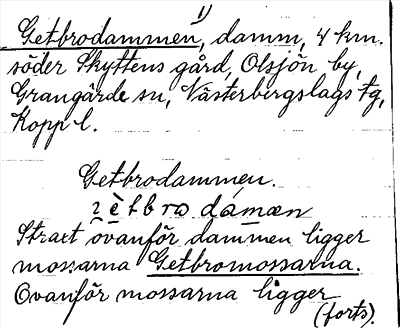 1)
Getbrodammen, damm, 4 km.
söder Skyttens gård, Olsjön by,
Grangärde sn, Västerbergslags tg,
Kopp l.
Getbrodammen.
Strax ovanför dammen ligger
mossarna Getbromossarna.
Ovanför mossarna ligger
(forts).